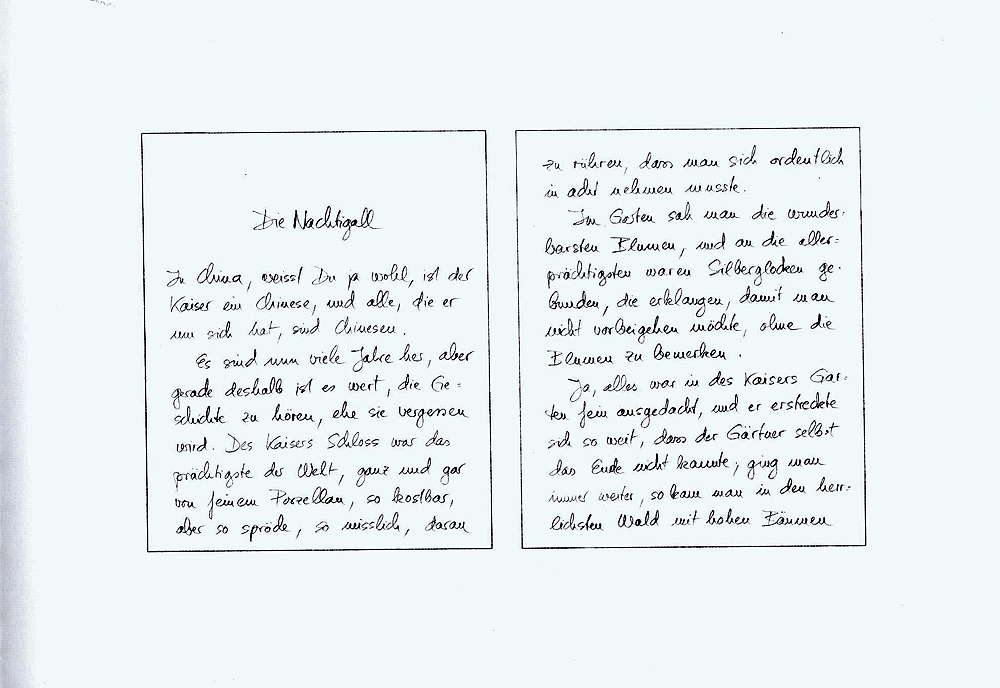 Die Nachtigall
In China, weisst Du ja wohl, ist der
Kaiser ein Chinese, und alle, die er
um sich hat, sind Chinesen.
Es sind nun viele Jahre her, aber
gerade deshalb ist es wert, die Ge=
schichte zu hören, ehe sie vergessen
wird. Des Kaisers Schloss war das
prächtigste der Welt, ganz und gar
von feinem Porzellan, so kostbar,
aber so spröde, so misslich, daran
zu rühren, dass man sich ordentlich
in acht nehmen musste.
Im Garten sah man die wunder-
barsten Blumen, und an die aller=
prächtigsten waren Silberglocken ge-
bunden, die erklangen, damit man
nicht vorbeigehen möchte, ohne die
Blumen zu bemerken.
Ja, alles war in des Kaisers Gar-
ten fein ausgedacht, und er erstreckte
sich so weit, dass der Gärtner selbst
das Ende nicht kannte; ging man
immer weiter, so kam man in den herr=
lichsten Wald mit hohen Bäumen